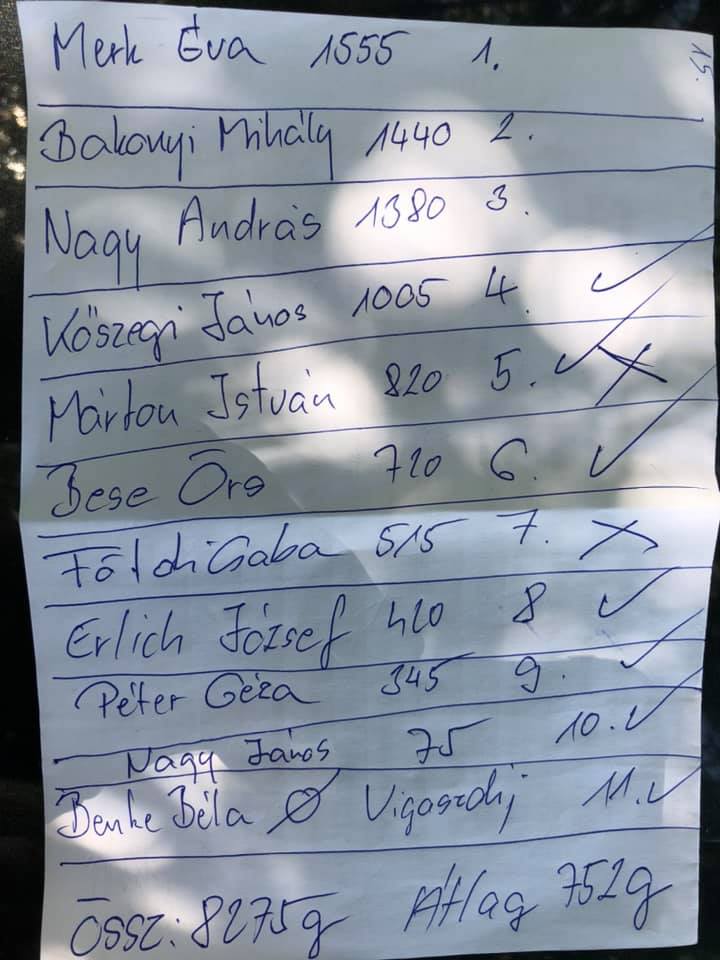 15.
Merk Éva 1555 1.
Bakonyi Mihály 1440 2.
Nagy András 1380 3.
Kőszegi János 1005 4. ✓
Márton István 820 5. ✓ X
Bese Örs 720 6. ✓
Földi Csaba 515 7. X
Erlich József 420 8 ✓
Péter Géza 345 9. ✓
Nagy János 75 10. ✓
Benke Béla Ø Vigaszdíj 11. ✓
Össz: 8275g Átlag 752g